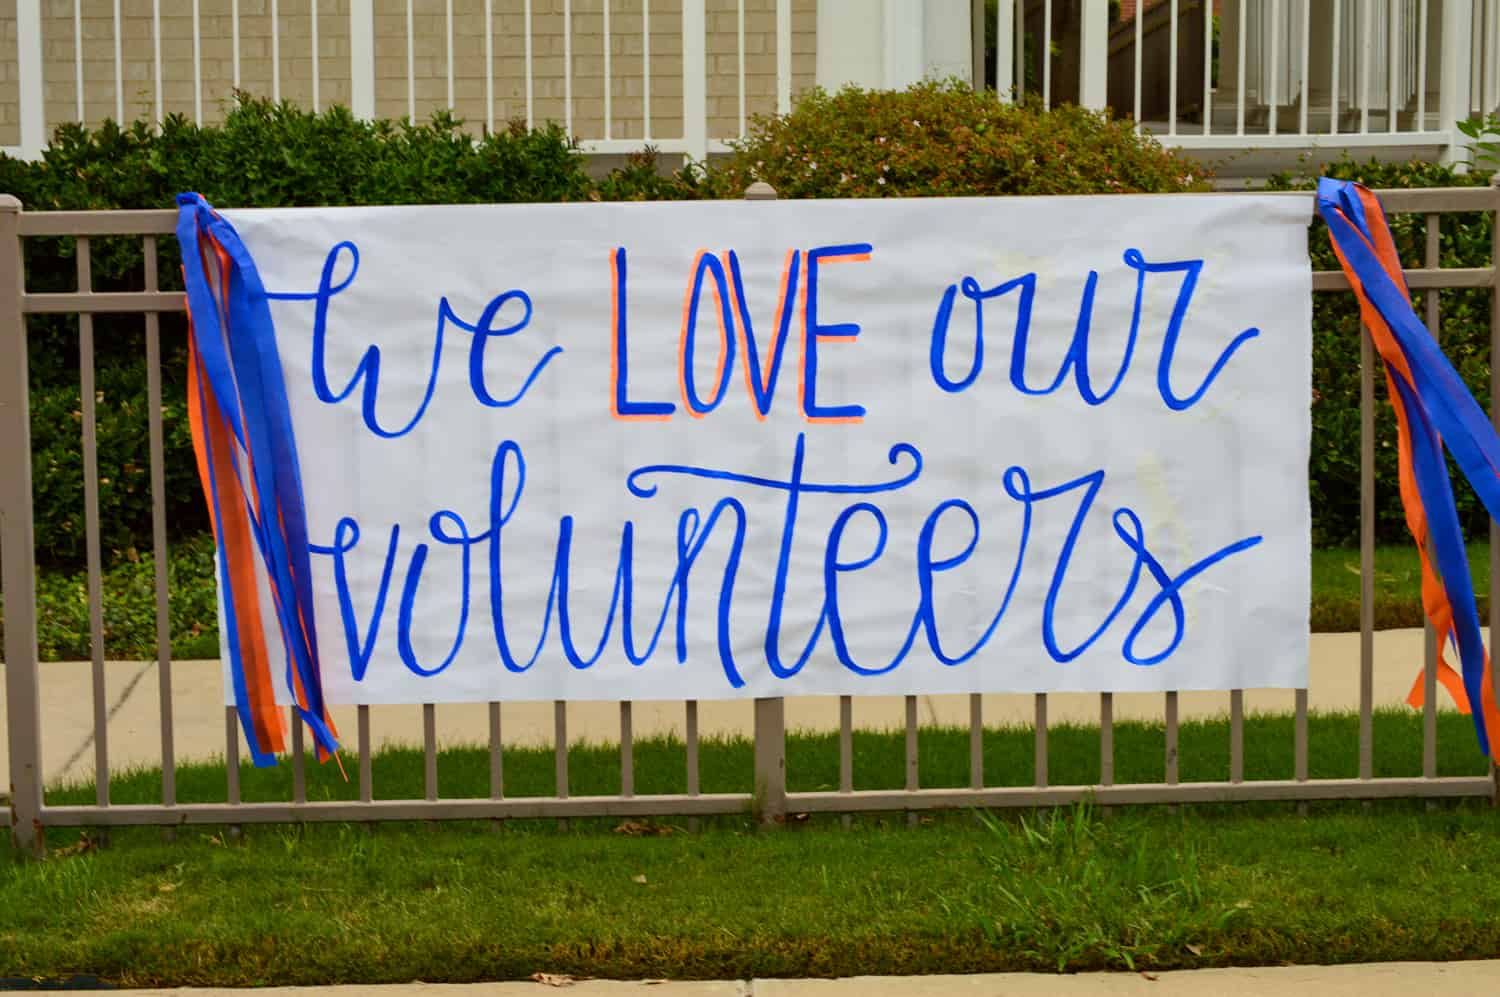 We LOVE our
volunteers